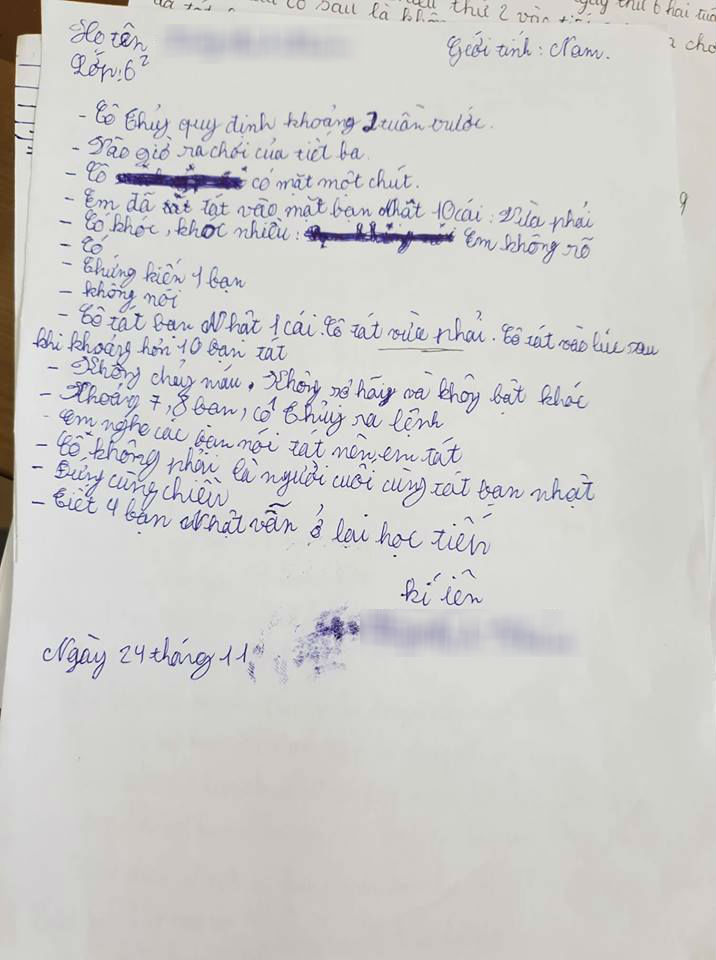 thứ 2 vào tiết
ngày thứ 6 hai tuần
có sau là
Họ tên
Giới tính: Nam.
Lớp: 6²
- Cô Thủy quy định khoảng 2 tuần trước.
- Vào giờ ra chơi của tiết ba.
- Cô có mặt một chút.
- Em đã tát vào mặt bạn Nhật 10 cái: Vừa phải
- Có khóc, khóc nhiều: Em không rõ
- Có
- Chứng kiến 1 bạn
- không nói
- Cô tát bạn Nhật 1 cái. Cô tát vừa phải. Cô tát vào lúc sau
khi khoảng hơn 10 bạn tát
- Không chảy máu. Không rõ hãy và không bật khóc
- Khoảng 7, 8 bạn, cô Thủy ra lệnh
- Em nghe các bạn nói tát nên em tát
- Cô không phải là người cuối cùng tát bạn nhật
- Đứng cùng chiều
- Tiết 4 bạn Nhật vẫn ở lại học tiến
kí iên
Ngày 24 tháng 11
9